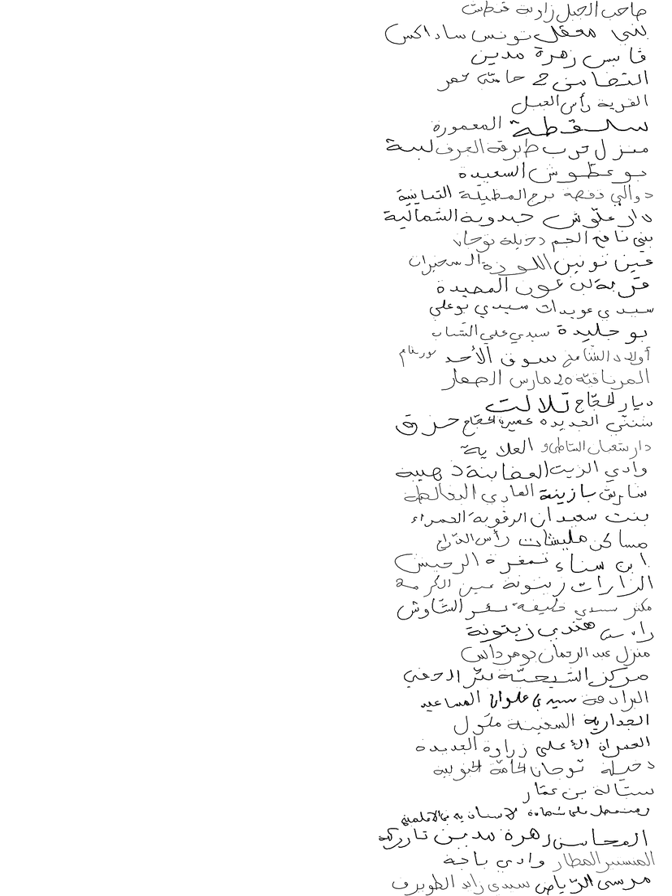 صاحب الجبل زاوية قنطش
بلني معقل تونس ساداكس
قابس زهرة مدين
التضامن 2 حامتي عمر
القرية رأس الجبل
سلقطة المعمورة
منزل حرب طبرقة الجرف لبنة
بوعطوش السعيدة
دوالي قفصة برج المظيلة الثمانية
دار علوش جبدوبة الشمالية
بني نافع الجم دخيلة توجان
عين تونين اللوزة السخيرات
قربة بن عون المصيدة
سيدي عويدات سيدي بوعلي
بو جليدة سيدي علي الشباب
أولاد الشامخ سوق الأحد بورغام
المرناقية 20 مارس الصغار
ديار الحجاج تلالت
شنني الجديدة عميرة الحجاج حزق
دار شعبان الشاطئ العلاية
وادي الزيت العقابنة ذهيبة
شارق بازينة الهادي البغالطة
بنت سعيدان الرقوبة الحمراء
مساكن مليشات رأس الذراع
ابن سناء تمغزة الرحيش
الزارات زيتونة عين الكرمة
مكثر سيدي خليفة بئر الشاوش
هندي زيتونة
منزل عبد الرحمان بومرداس
مركز الشيحية بئر الحفي
البرادعة سيدي علوان المساعيد
الجدارية السعينة مكول
العمران الأعلى زراوة الجديدة
دخيلة توجان الحامة الجنوبية
ستالة بن عمار
على شهادة
المحاسن زهرة مدين تازركة
المنستير المطار وادي باجة
مرسى الرياض سيدي زايد الطويرف